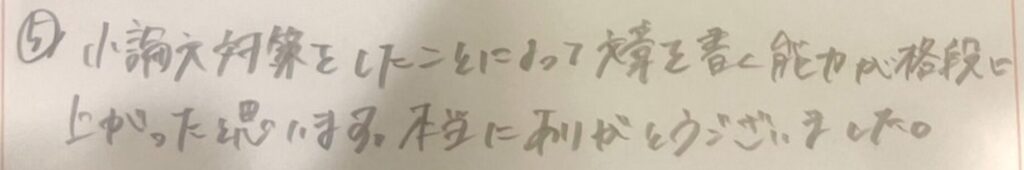 ⑤ 小論文対策をしたことによって文章を書く能力が格段に
上がったと思います。本当にありがとうございました。